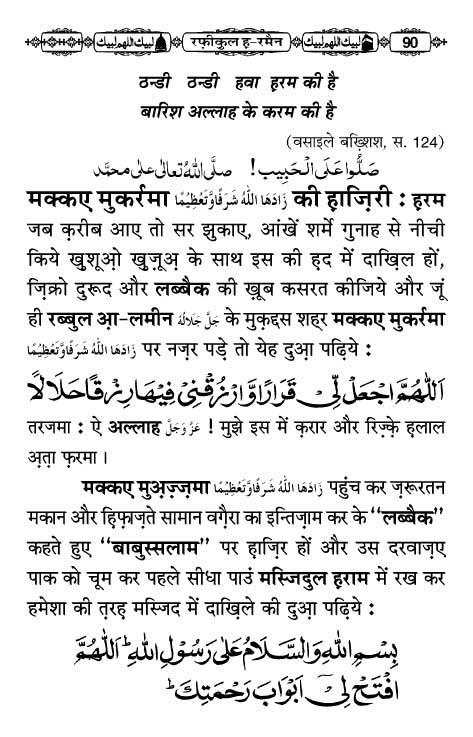 لبیک اللھم لبیک रफ़ीकुल ह-रमैन لبیک اللھم لبیک 90
ठन्डी ठन्डी हवा ह़रम की है
बारिश अल्लाह के करम की है
(वसाइले बख़्शिश, स. 124)
صَلُّوا عَلَى الْحَبِيب! صلَّى اللهُ تعالى على محمَّد
मक्कए मुकर्रमा زَادَهَا اللهُ شَرَفًا وَّتَعْظِيْمًا की ह़ाज़िरी : ह़रम
जब क़रीब आए तो सर झुकाए, आंखें शर्मे गुनाह से नीची
किये ख़ुशूओ़ ख़ुज़ूअ़ के साथ इस की ह़द में दाख़िल हों,
ज़िक्रो दुरूद और लब्बैक की ख़ूब कसरत कीजिये और जूं
ही रब्बुल आ़-लमीन جَلَّ جَلَالُهٗ के मुक़द्दस शहर मक्कए मुकर्रमा
زَادَهَا اللهُ شَرَفًا وَّتَعْظِيْمًا पर नज़र पड़े तो येह दुआ़ पढ़िये :
اَللّٰهُمَّ اجْعَلْ لِّىْ قَرَارًا وَّارْزُقْنِىْ فِيْهَا رِزْقًا حَلَالًا
तरजमा : ऐ अल्लाह عَزَّوَجَلَّ ! मुझे इस में क़रार और रिज़्क़े ह़लाल
अ़त़ा फ़रमा ।
मक्कए मुअ़ज़्ज़मा زَادَهَا اللهُ شَرَفًا وَّتَعْظِيْمًا पहुंच कर ज़रूरतन
मकान और ह़िफ़ाज़ते सामान वग़ैरा का इन्तिज़ाम कर के “लब्बैक”
कहते हुए “बाबुस्सलाम” पर ह़ाज़िर हों और उस दरवाज़ए
पाक को चूम कर पहले सीधा पाउं मस्जिदुल ह़राम में रख कर
हमेशा की त़रह़ मस्जिद में दाख़िले की दुआ़ पढ़िये :
بِسْمِ اللهِ وَالسَّلَامُ عَلٰى رَسُوْلِ اللهِ ؕ اَللّٰهُمَّ
افْتَحْ لِىْٓ اَبْوَابَ رَحْمَتِكَ ؕ